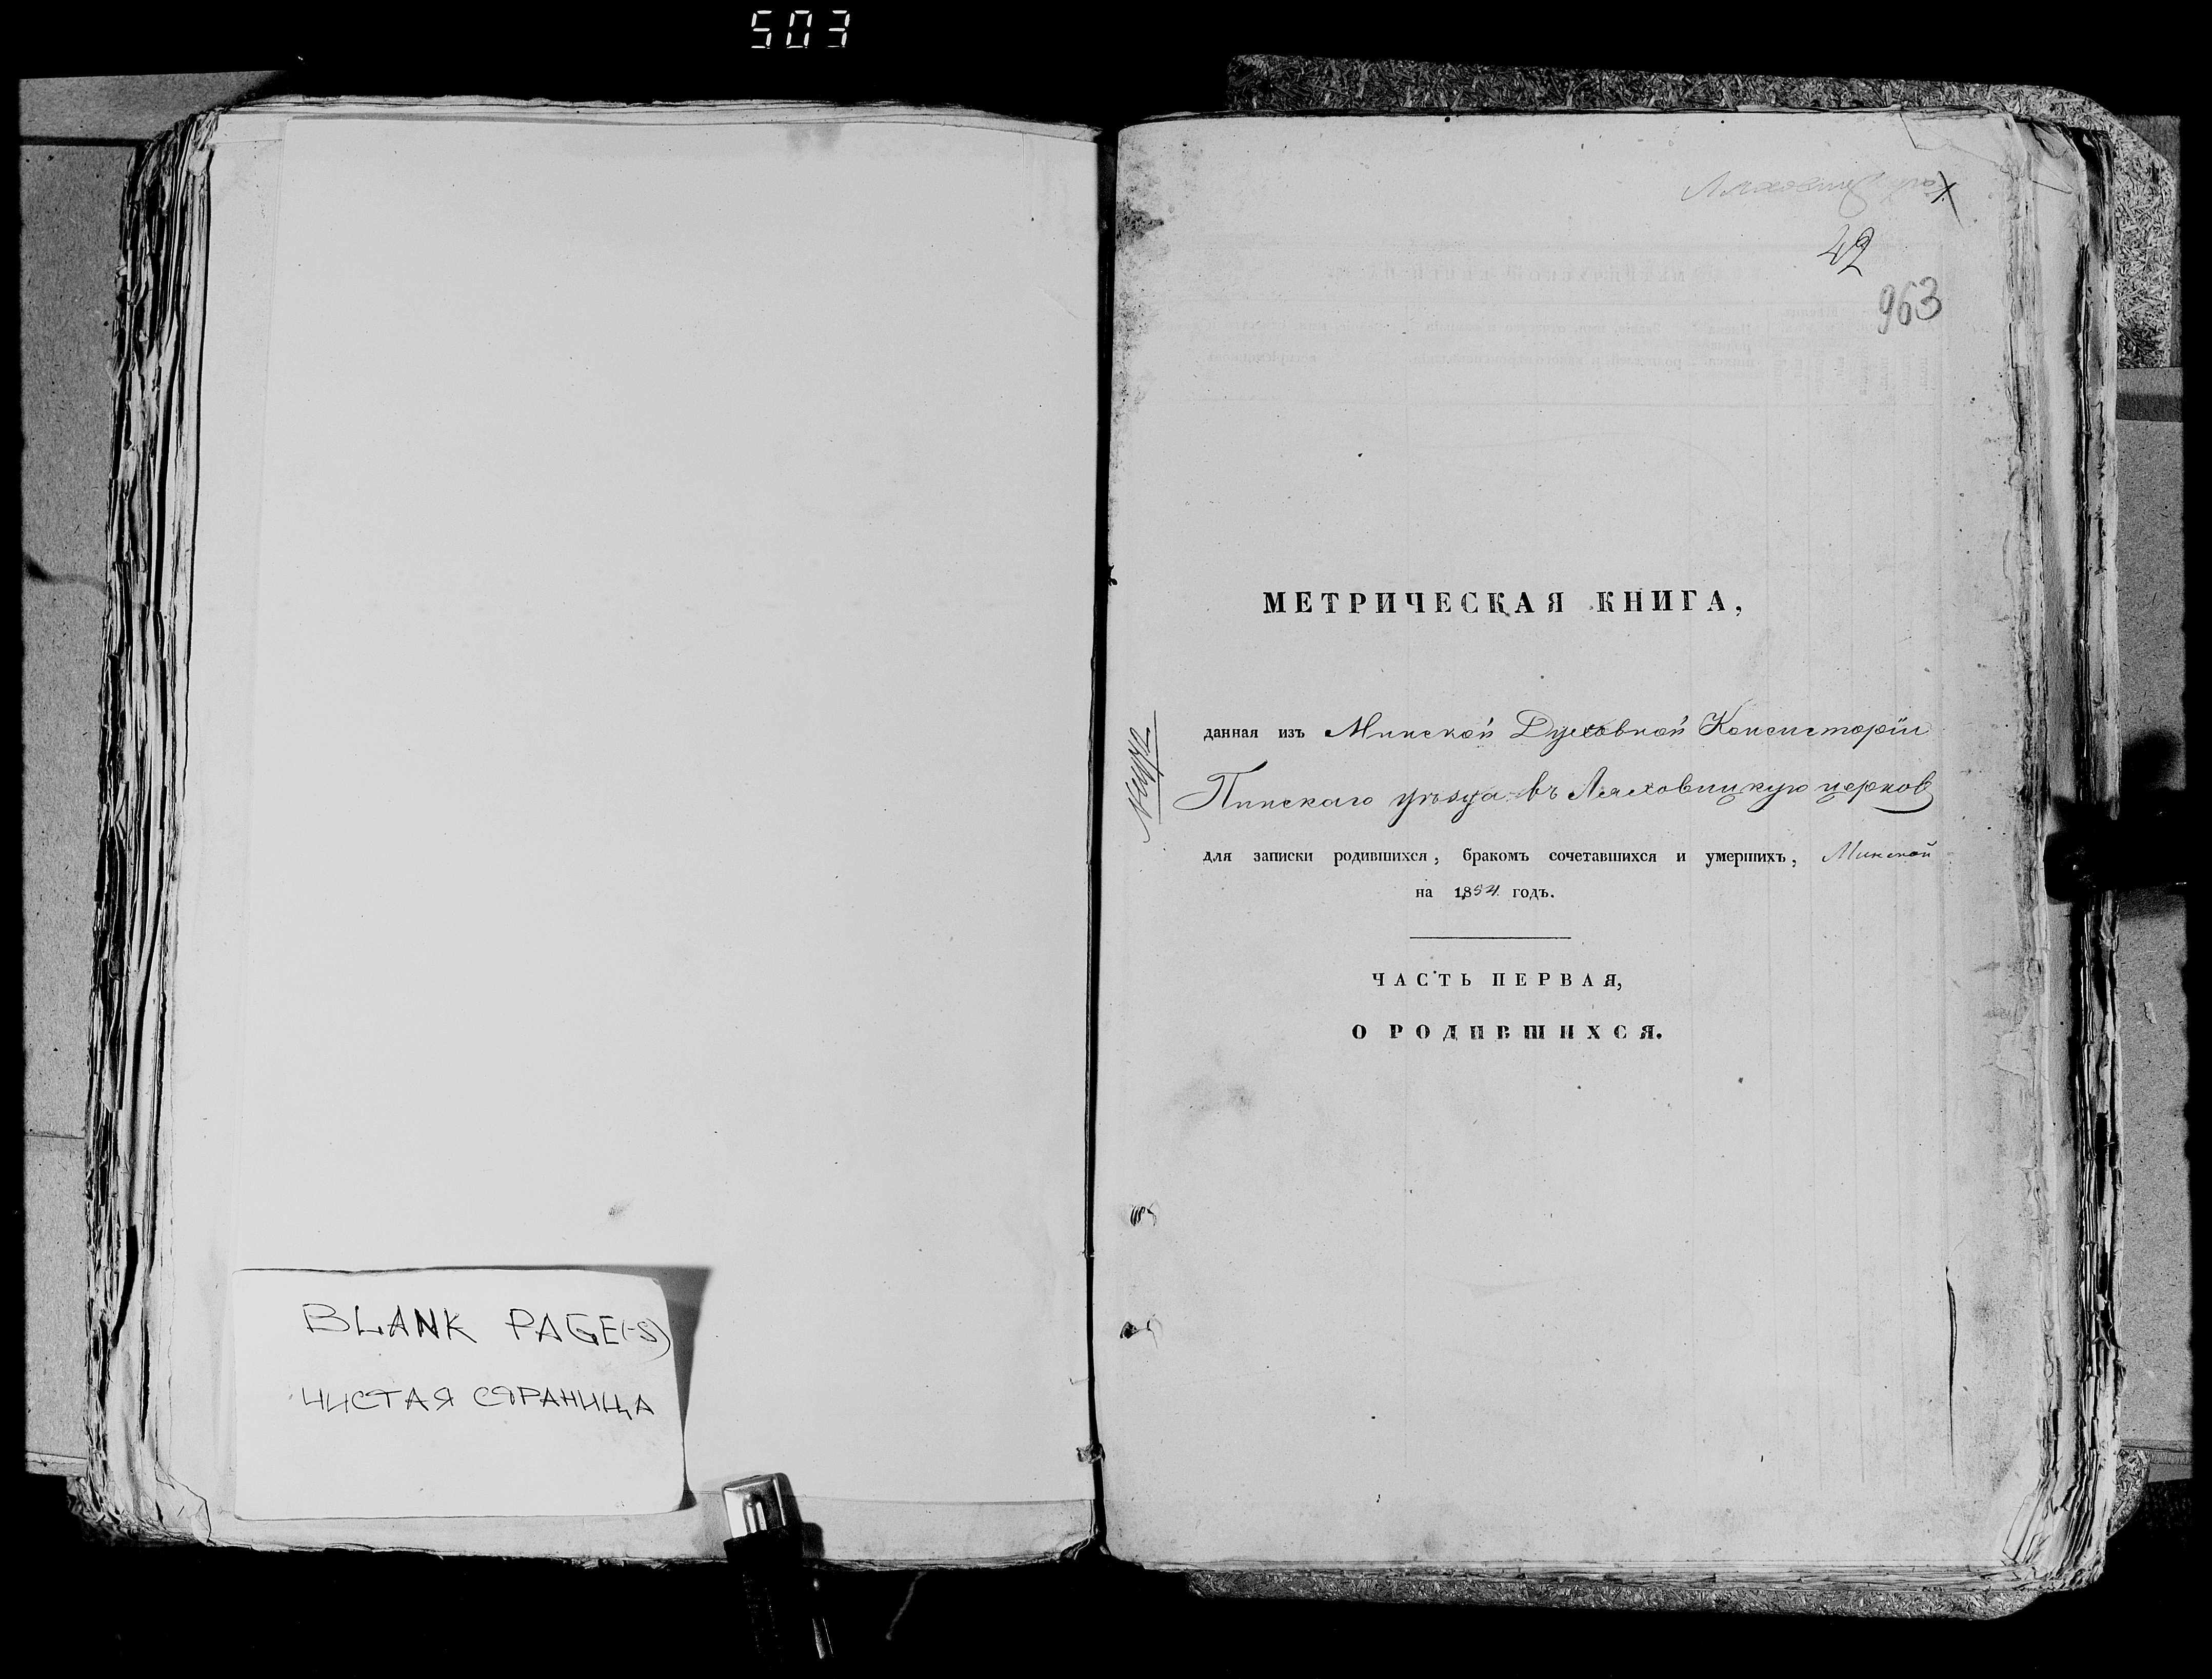 503
BLANK PAGE(-S)
ЧИСТАЯ СТРАНИЦА
42
963
МЕТРИЧЕСКАЯ КНИГА,
данная изъ Минской Духовной Консисторіи
Пинскаго уѣзда въ Ляховицкую церковь
для записки родившихся, бракомъ сочетавшихся и умершихъ, Минской
на 1854 годъ.
ЧАСТЬ ПЕРВАЯ,
О РОДИВШИХСЯ.